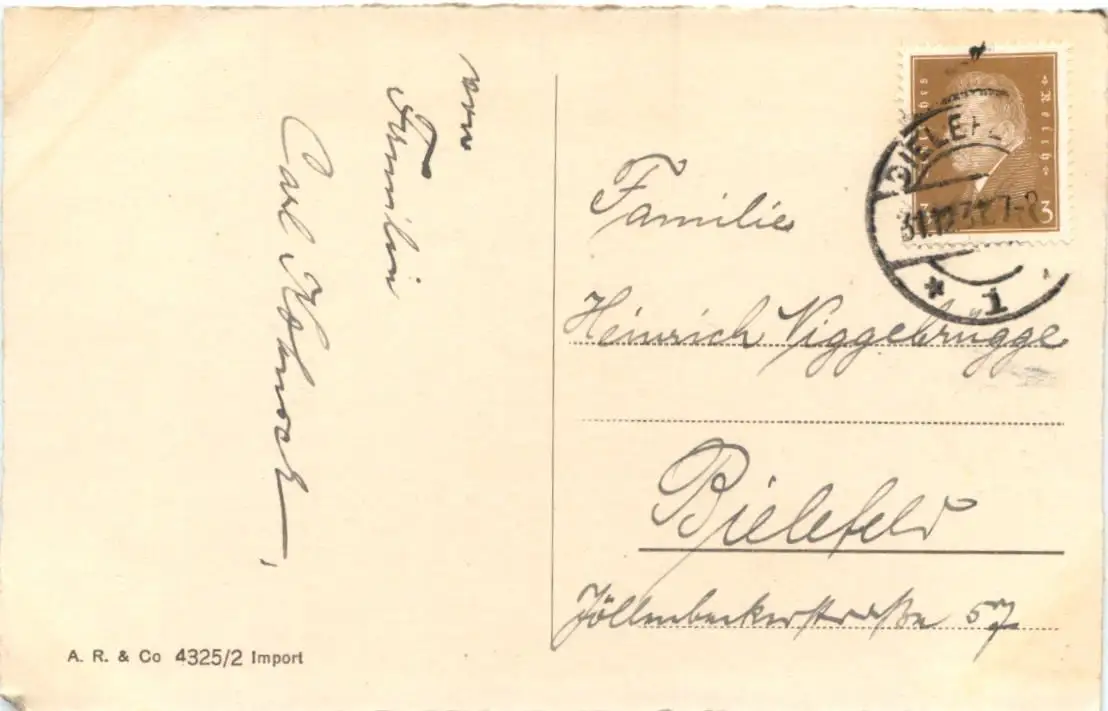 von
Familie
Carl
Deutsches Reich
3 3
BIELEFELD
31.12.31. 7-8
* 1
Familie
Heinrich Niggebrügge
Bielefeld
Jöllenbeckerstraße 57
A. R. & Co 4325/2 Import